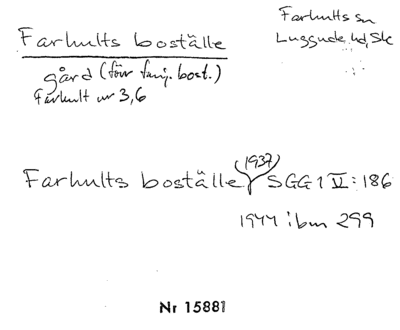 Farhults boställe
Farhults sn
Luggude hd, Sk
gård (förr faηj. bost.)
Farhult nr 3,6
Farhults boställe (1937) SGG 1 V: 186
1944 ibm 299
Nr 15881